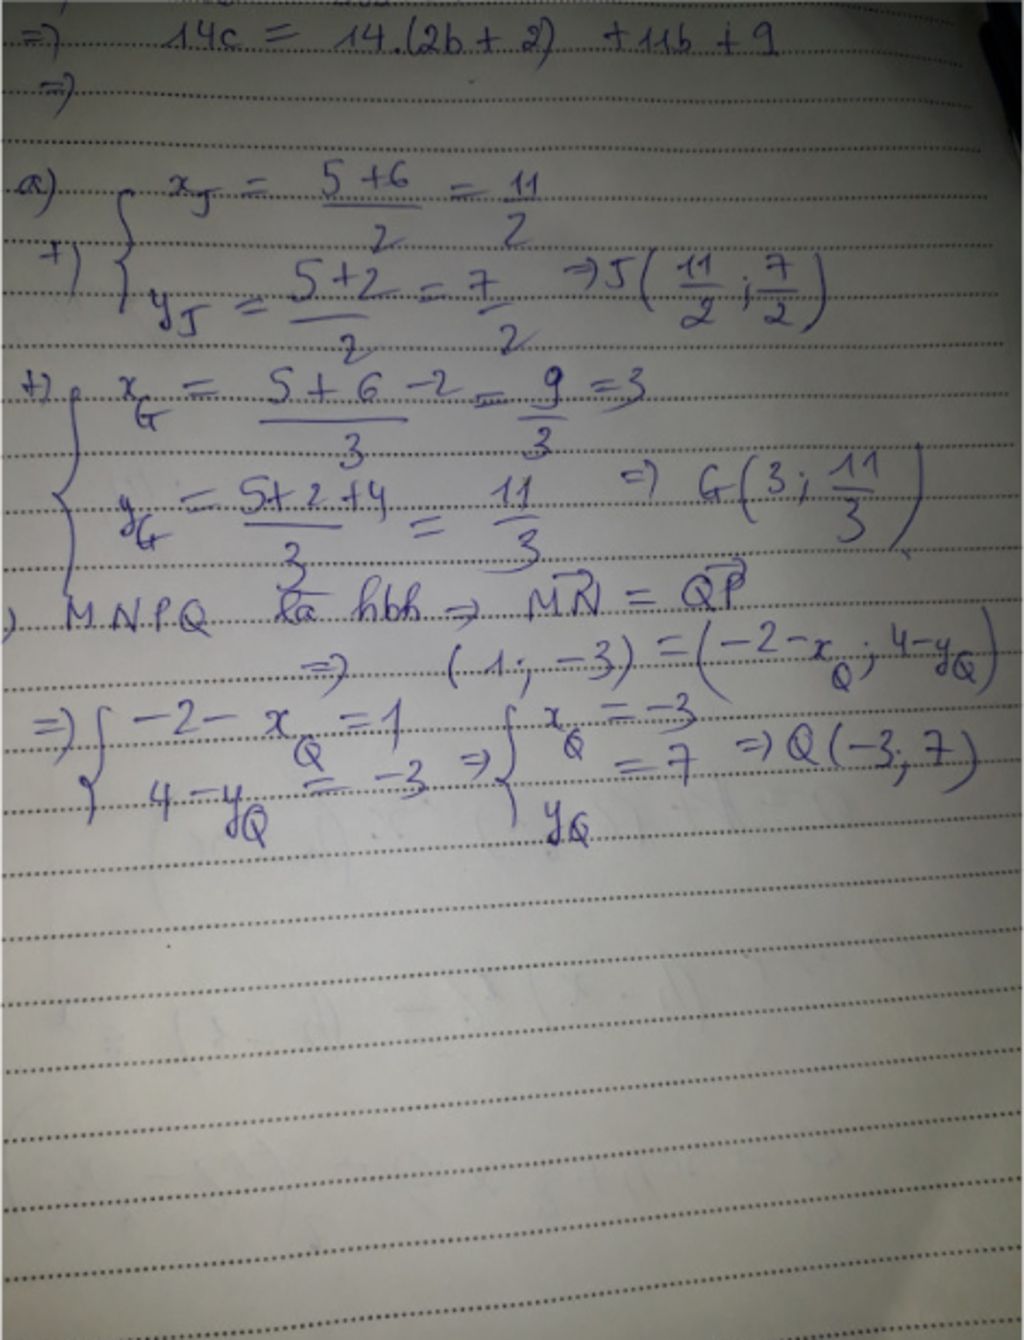 => 14c = 14.(2b + 2) + 11b + 9
=>
a) x_J = (5+6)/2 = 11/2
+) y_J = (5+2)/2 = 7/2 => J(11/2 ; 7/2)
+) x_G = (5+6-2)/3 = 9/3 = 3
y_G = (5+2+4)/3 = 11/3 => G(3; 11/3)
) MNPQ là hbh => MN = QP
=> (1; -3) = (-2-x_Q; 4-y_Q)
=> { -2 - x_Q = 1 => { x_Q = -3
4 - y_Q = -3 y_Q = 7 => Q(-3; 7)